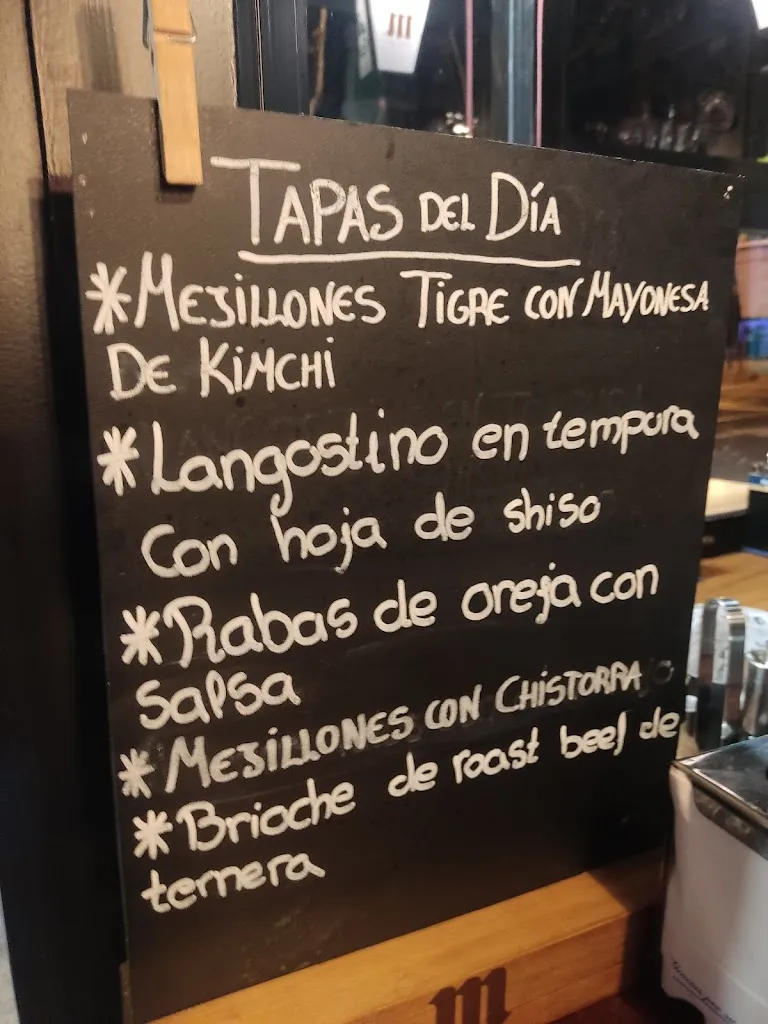 m
TAPAS DEL DÍA
*MEJILLONES TIGRE CON MAYONESA
DE KIMCHI
*Langostino en tempura
Con hoja de shiso
*Rabas de oreja con
salsa
*MEJILLONES CON CHISTORRA
*Brioche de roast beef de
ternera
m